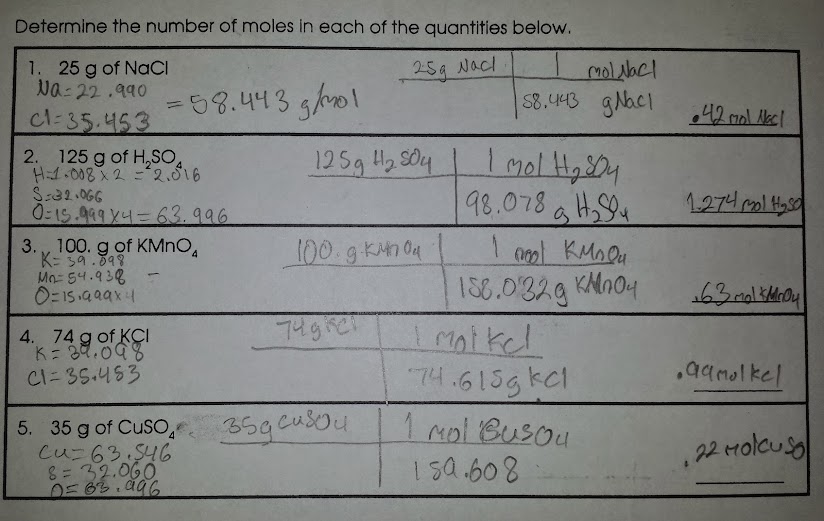 Determine the number of moles in each of the quantities below.
1. 25 g of NaCl
Na=22.990
Cl=35.453
=58.443 g/mol
25g Nacl | 1 mol Nacl
58.443 g Nacl
.42 mol Nacl
2. 125 g of H₂SO₄
H=1.008 x 2 = 2.016
S=32.066
O=15.999 x 4 = 63.996
125g H₂SO₄ | 1 mol H₂SO₄
98.078 g H₂SO₄
1.274 mol H₂SO
3. 100. g of KMnO₄
K=39.098
Mn=54.938 -
O=15.999x4
100. g KMnO4 | 1 mol KMnO4
158.032g KMnO4
.63 mol KMnO4
4. 74 g of KCl
K=39.098
Cl=35.453
74g KCl | 1 mol Kcl
74.615g kcl
.99 mol kcl
5. 35 g of CuSO₄
Cu=63.546
S=32.060
O=63.996
35g cuSO4 | 1 mol CuSO4
159.608
.22 molcuSO